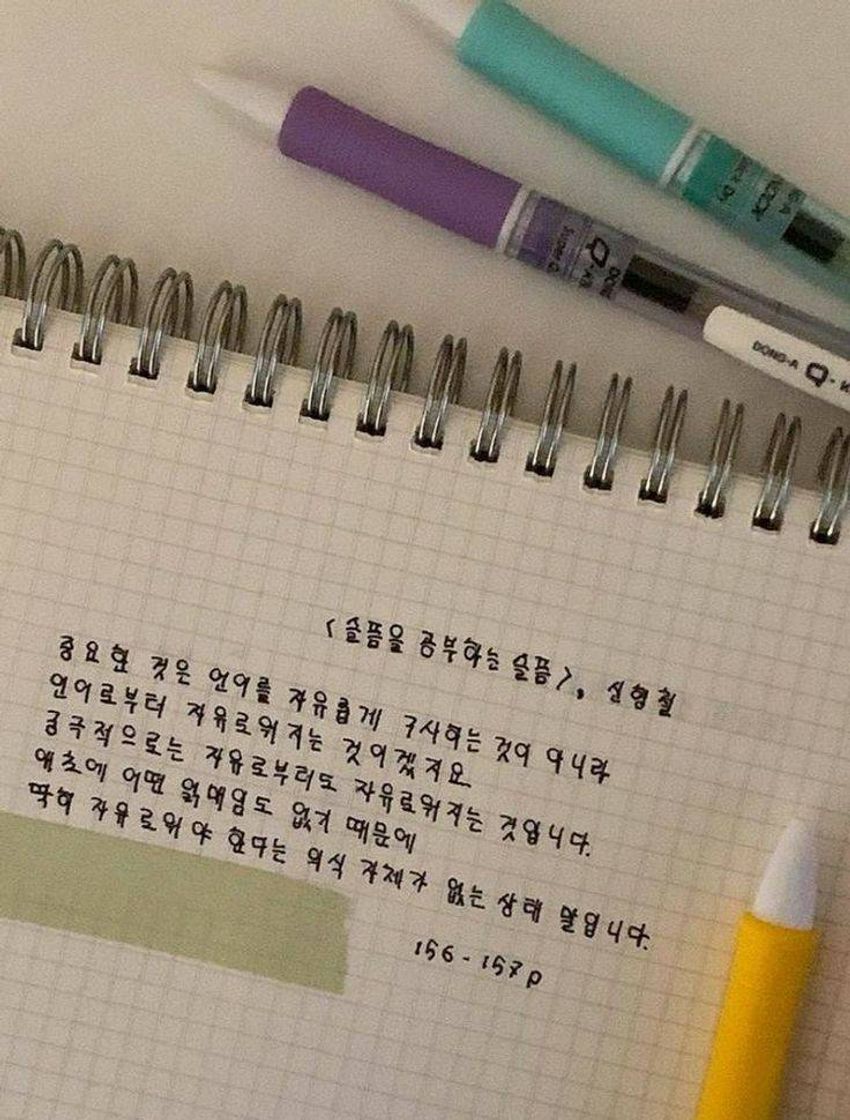 DONG-A Q-K
<슬픔을 공부하는 슬픔>, 신형철
중요한 것은 언어를 자유롭게 구사하는 것이 아니라
언어로부터 자유로워지는 것이겠지요.
궁극적으로는 자유로부터도 자유로워지는 것입니다.
애초에 어떤 얽매임도 없기 때문에
딱히 자유로워야 한다는 의식 자체가 없는 상태 말입니다.
156-157p